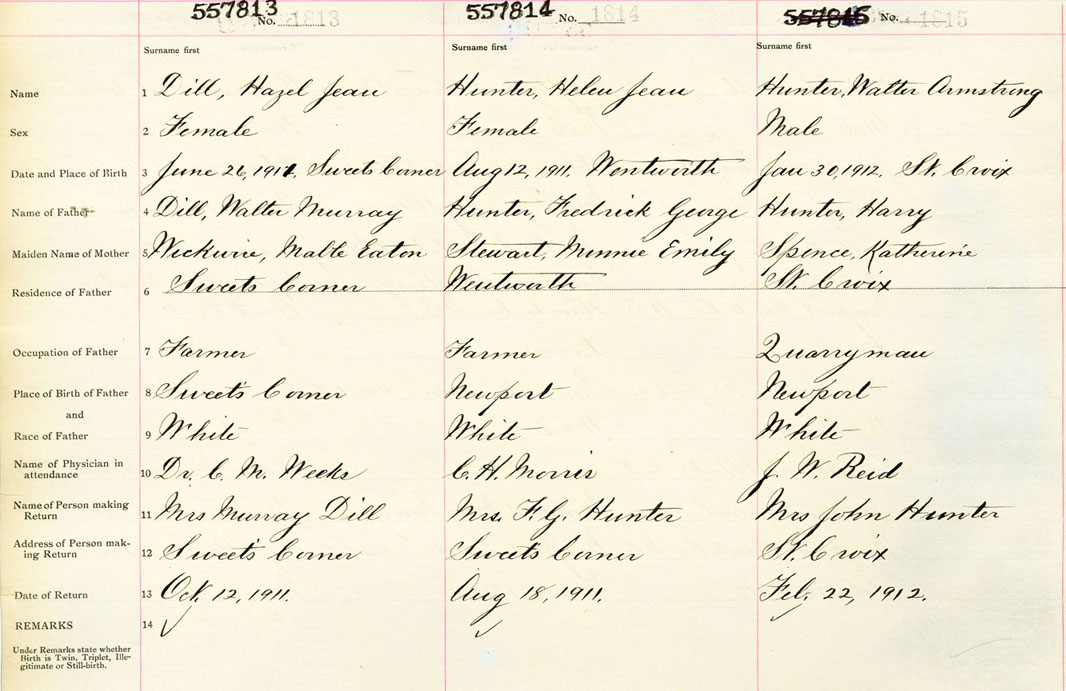 557813 No. 1813 557814 No. 1814 557815 No. 1815
Surname first Surname first Surname first
Name 1 Dill, Hazel Jean Hunter, Helen Jean Hunter, Walter Armstrong
Sex 2 Female Female Male
Date and Place of Birth 3 June 26, 1911, Sweets Corner Aug 12, 1911. Wentworth Jan 30, 1912. St. Croix
Name of Father 4 Dill, Walter Murray Hunter, Fredrick George Hunter, Harry
Maiden Name of Mother 5 Wickwire, Mable Eaton Stewart, Minnie Emily Spence, Katherine
Residence of Father 6 Sweets Corner Wentworth St. Croix
Occupation of Father 7 Farmer Farmer Quarryman
Place of Birth of Father 8 Sweet's Corner Newport Newport
and
Race of Father 9 White White White
Name of Physician in
attendance 10 Dr. C. M. Weeks C. H. Morris J. W. Reid
Name of Person making
Return 11 Mrs Murray Dill Mrs. F. G. Hunter Mrs John Hunter
Address of Person mak-
ing Return 12 Sweet's Corner Sweets Corner St. Croix
Date of Return 13 Oct. 12, 1911. Aug 18, 1911. Feb. 22, 1912.
REMARKS 14
Under Remarks state whether
Birth is Twin, Triplet, Ille-
gitimate or Still-birth.